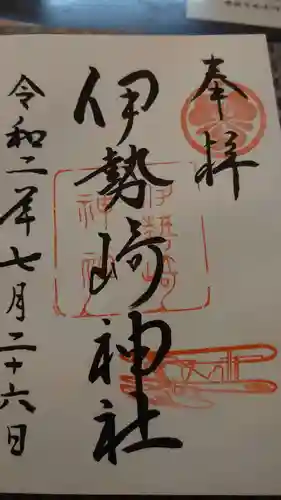 奉拝
伊勢崎神社
伊勢崎神社
令和二年七月二十六日